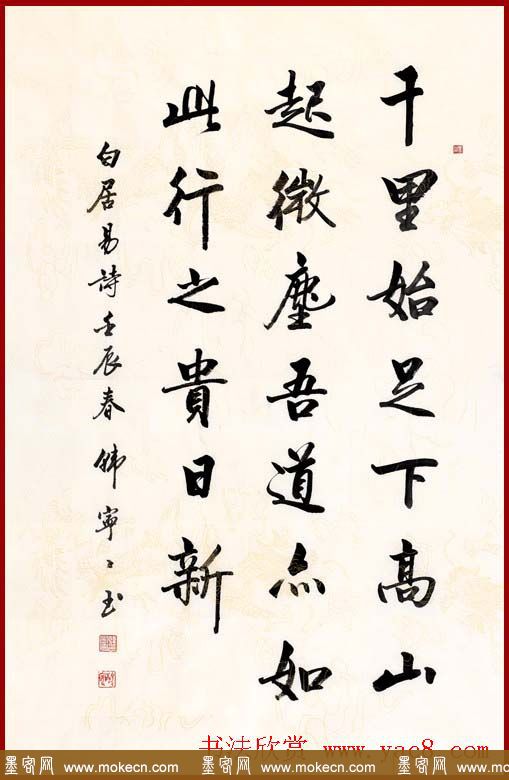 千里始足下高山
起微塵吾道亦如
此行之貴日新
白居易詩壬辰春 韩寧〻
书法欣赏 www.yac8.com
墨客网 www.mokecn.com 墨客网 www.mokecn.com 墨客网 www.mokecn.com